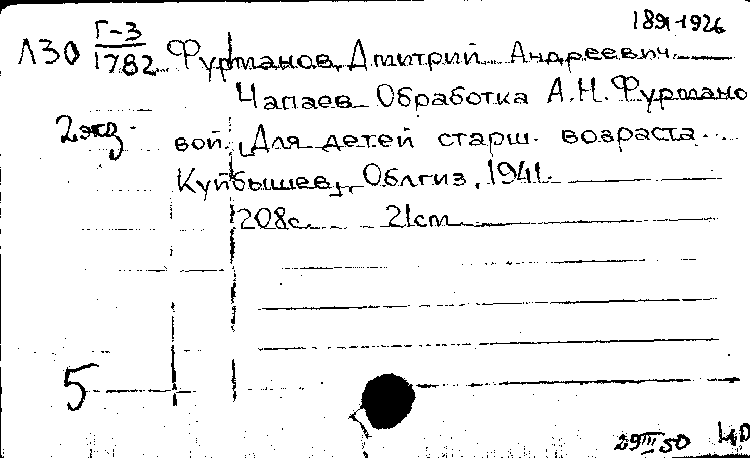 1891-1926
Л30 Г-3/1782 Фурманов, Дмитрий Андреевич.
Чапаев. Обработка А.Н. Фурмано
2 экз. вой. Для детей старш. возраста...
Куйбышев, Облгиз, 1941.
208с. 21см
5
29 III 50